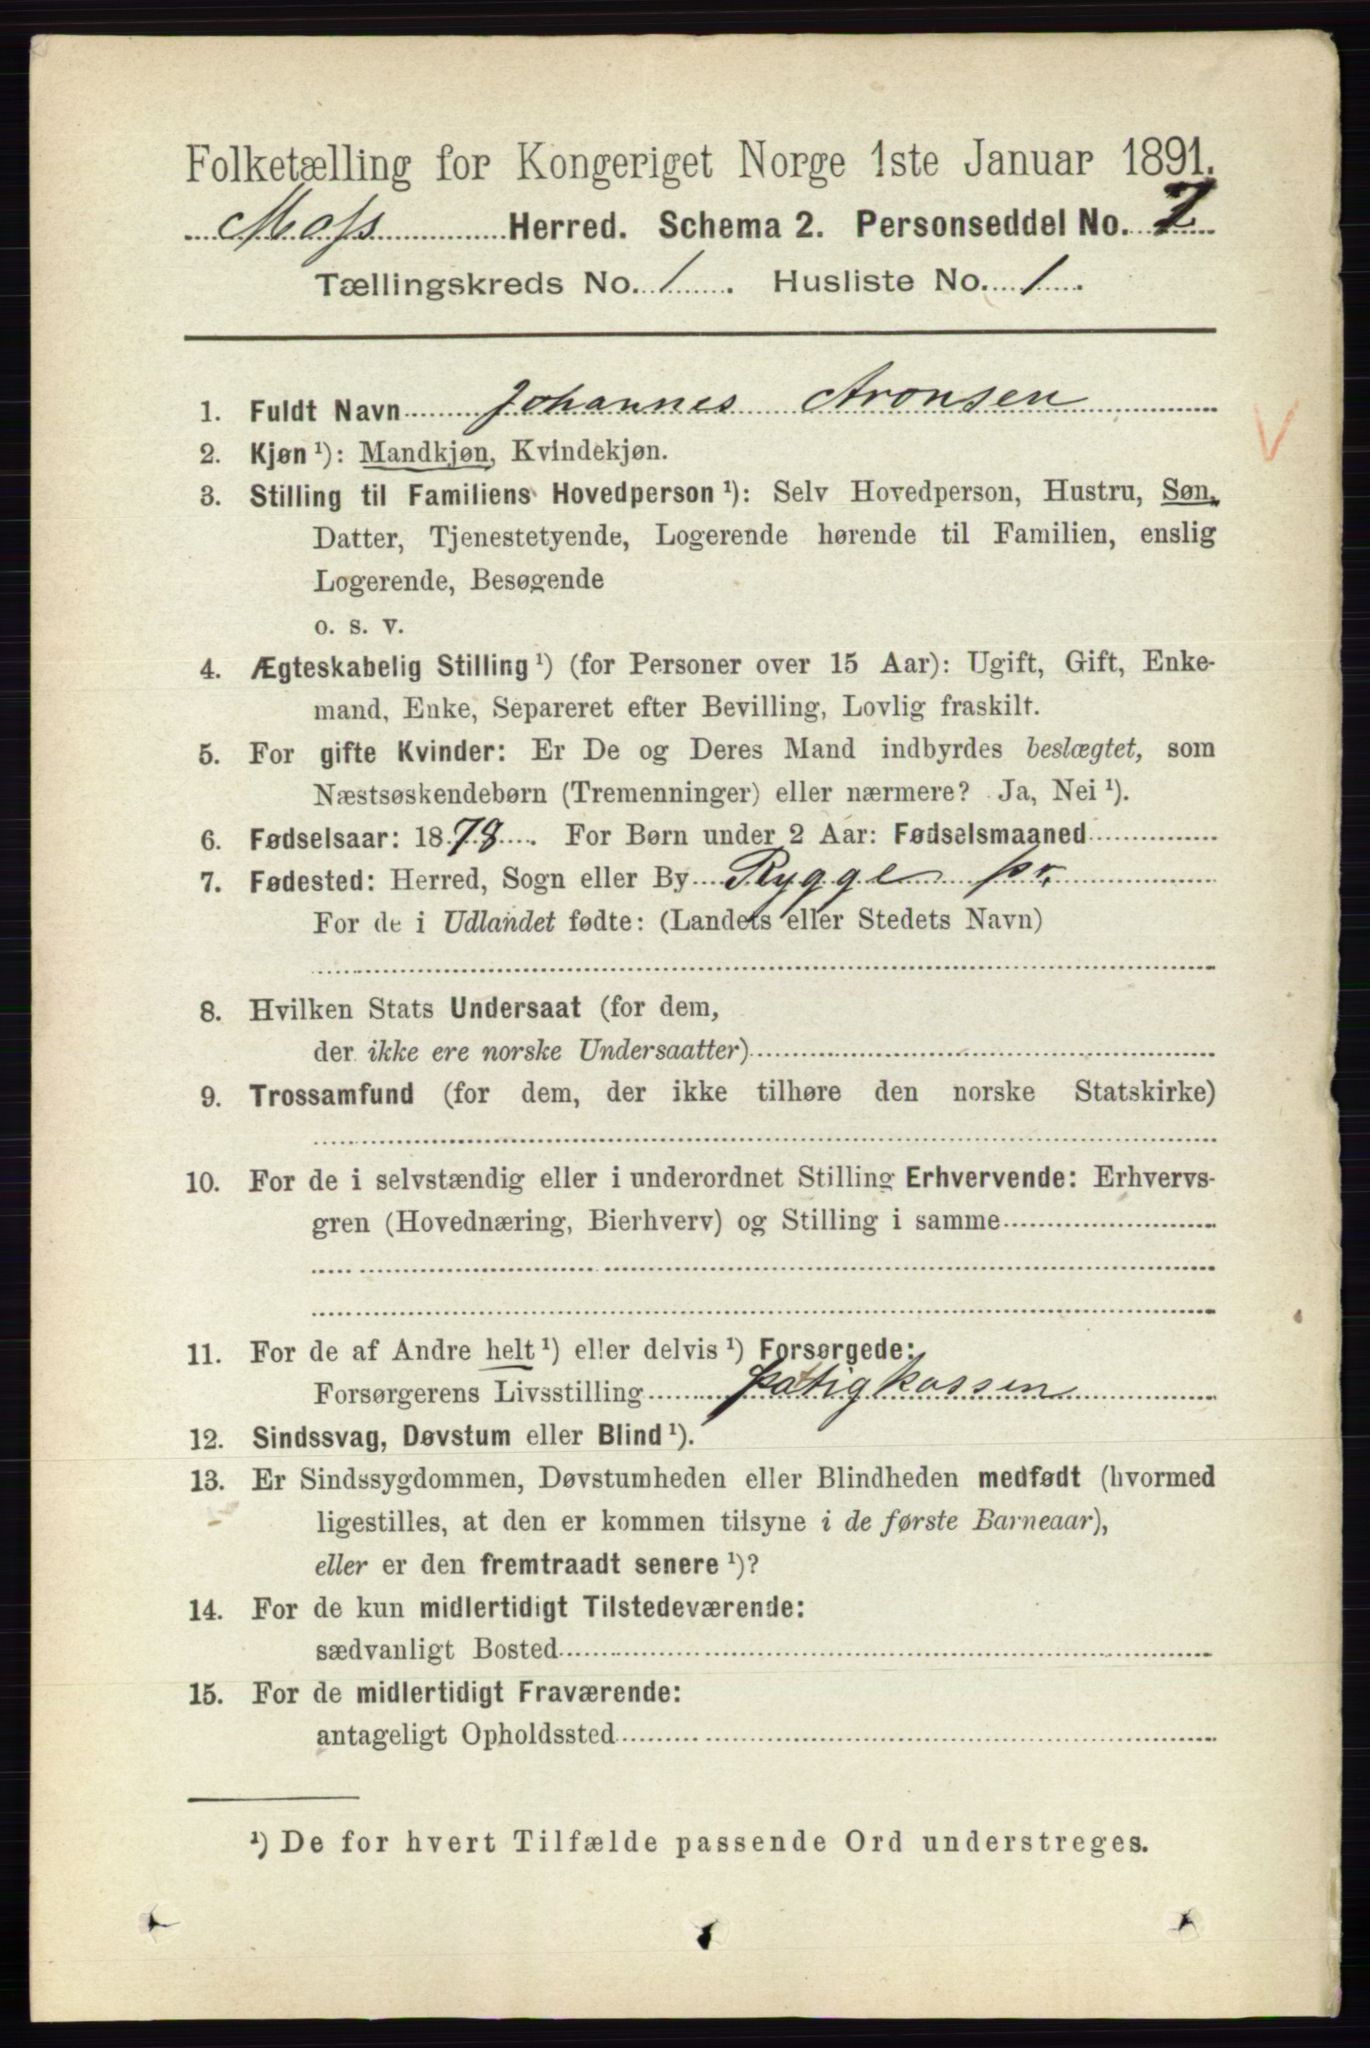 Folketælling for Kongeriget Norge 1ste Januar 1891.
Moss Herred. Schema 2. Personseddel No. 7
Tællingskreds No. 1. Husliste No. 1.
1. Fuldt Navn Johannes Aronsen
2. Kjøn ¹): Mandkjøn, Kvindekjøn.
3. Stilling til Familiens Hovedperson ¹): Selv Hovedperson, Hustru, Søn,
Datter, Tjenestetyende, Logerende hørende til Familien, enslig
Logerende, Besøgende
o. s. v.
4. Ægteskabelig Stilling ¹) (for Personer over 15 Aar): Ugift, Gift, Enke-
mand, Enke, Separeret efter Bevilling, Lovlig fraskilt.
5. For gifte Kvinder: Er De og Deres Mand indbyrdes beslægtet, som
Næstsøskendebørn (Tremenninger) eller nærmere? Ja, Nei ¹).
6. Fødselsaar: 1878. For Børn under 2 Aar: Fødselsmaaned
7. Fødested: Herred, Sogn eller By Rygge pr.
For de i Udlandet fødte: (Landets eller Stedets Navn)
8. Hvilken Stats Undersaat (for dem,
der ikke ere norske Undersaatter)
9. Trossamfund (for dem, der ikke tilhøre den norske Statskirke)
10. For de i selvstændig eller i underordnet Stilling Erhvervende: Erhvervs-
gren (Hovednæring, Bierhverv) og Stilling i samme
11. For de af Andre helt ¹) eller delvis ¹) Forsørgede:
Forsørgerens Livsstilling fatigkassen
12. Sindssvag, Døvstum eller Blind ¹).
13. Er Sindssygdommen, Døvstumheden eller Blindheden medfødt (hvormed
ligestilles, at den er kommen tilsyne i de første Barneaar),
eller er den fremtraadt senere ¹)?
14. For de kun midlertidigt Tilstedeværende:
sædvanligt Bosted
15. For de midlertidigt Fraværende:
antageligt Opholdssted
¹) De for hvert Tilfælde passende Ord understreges.